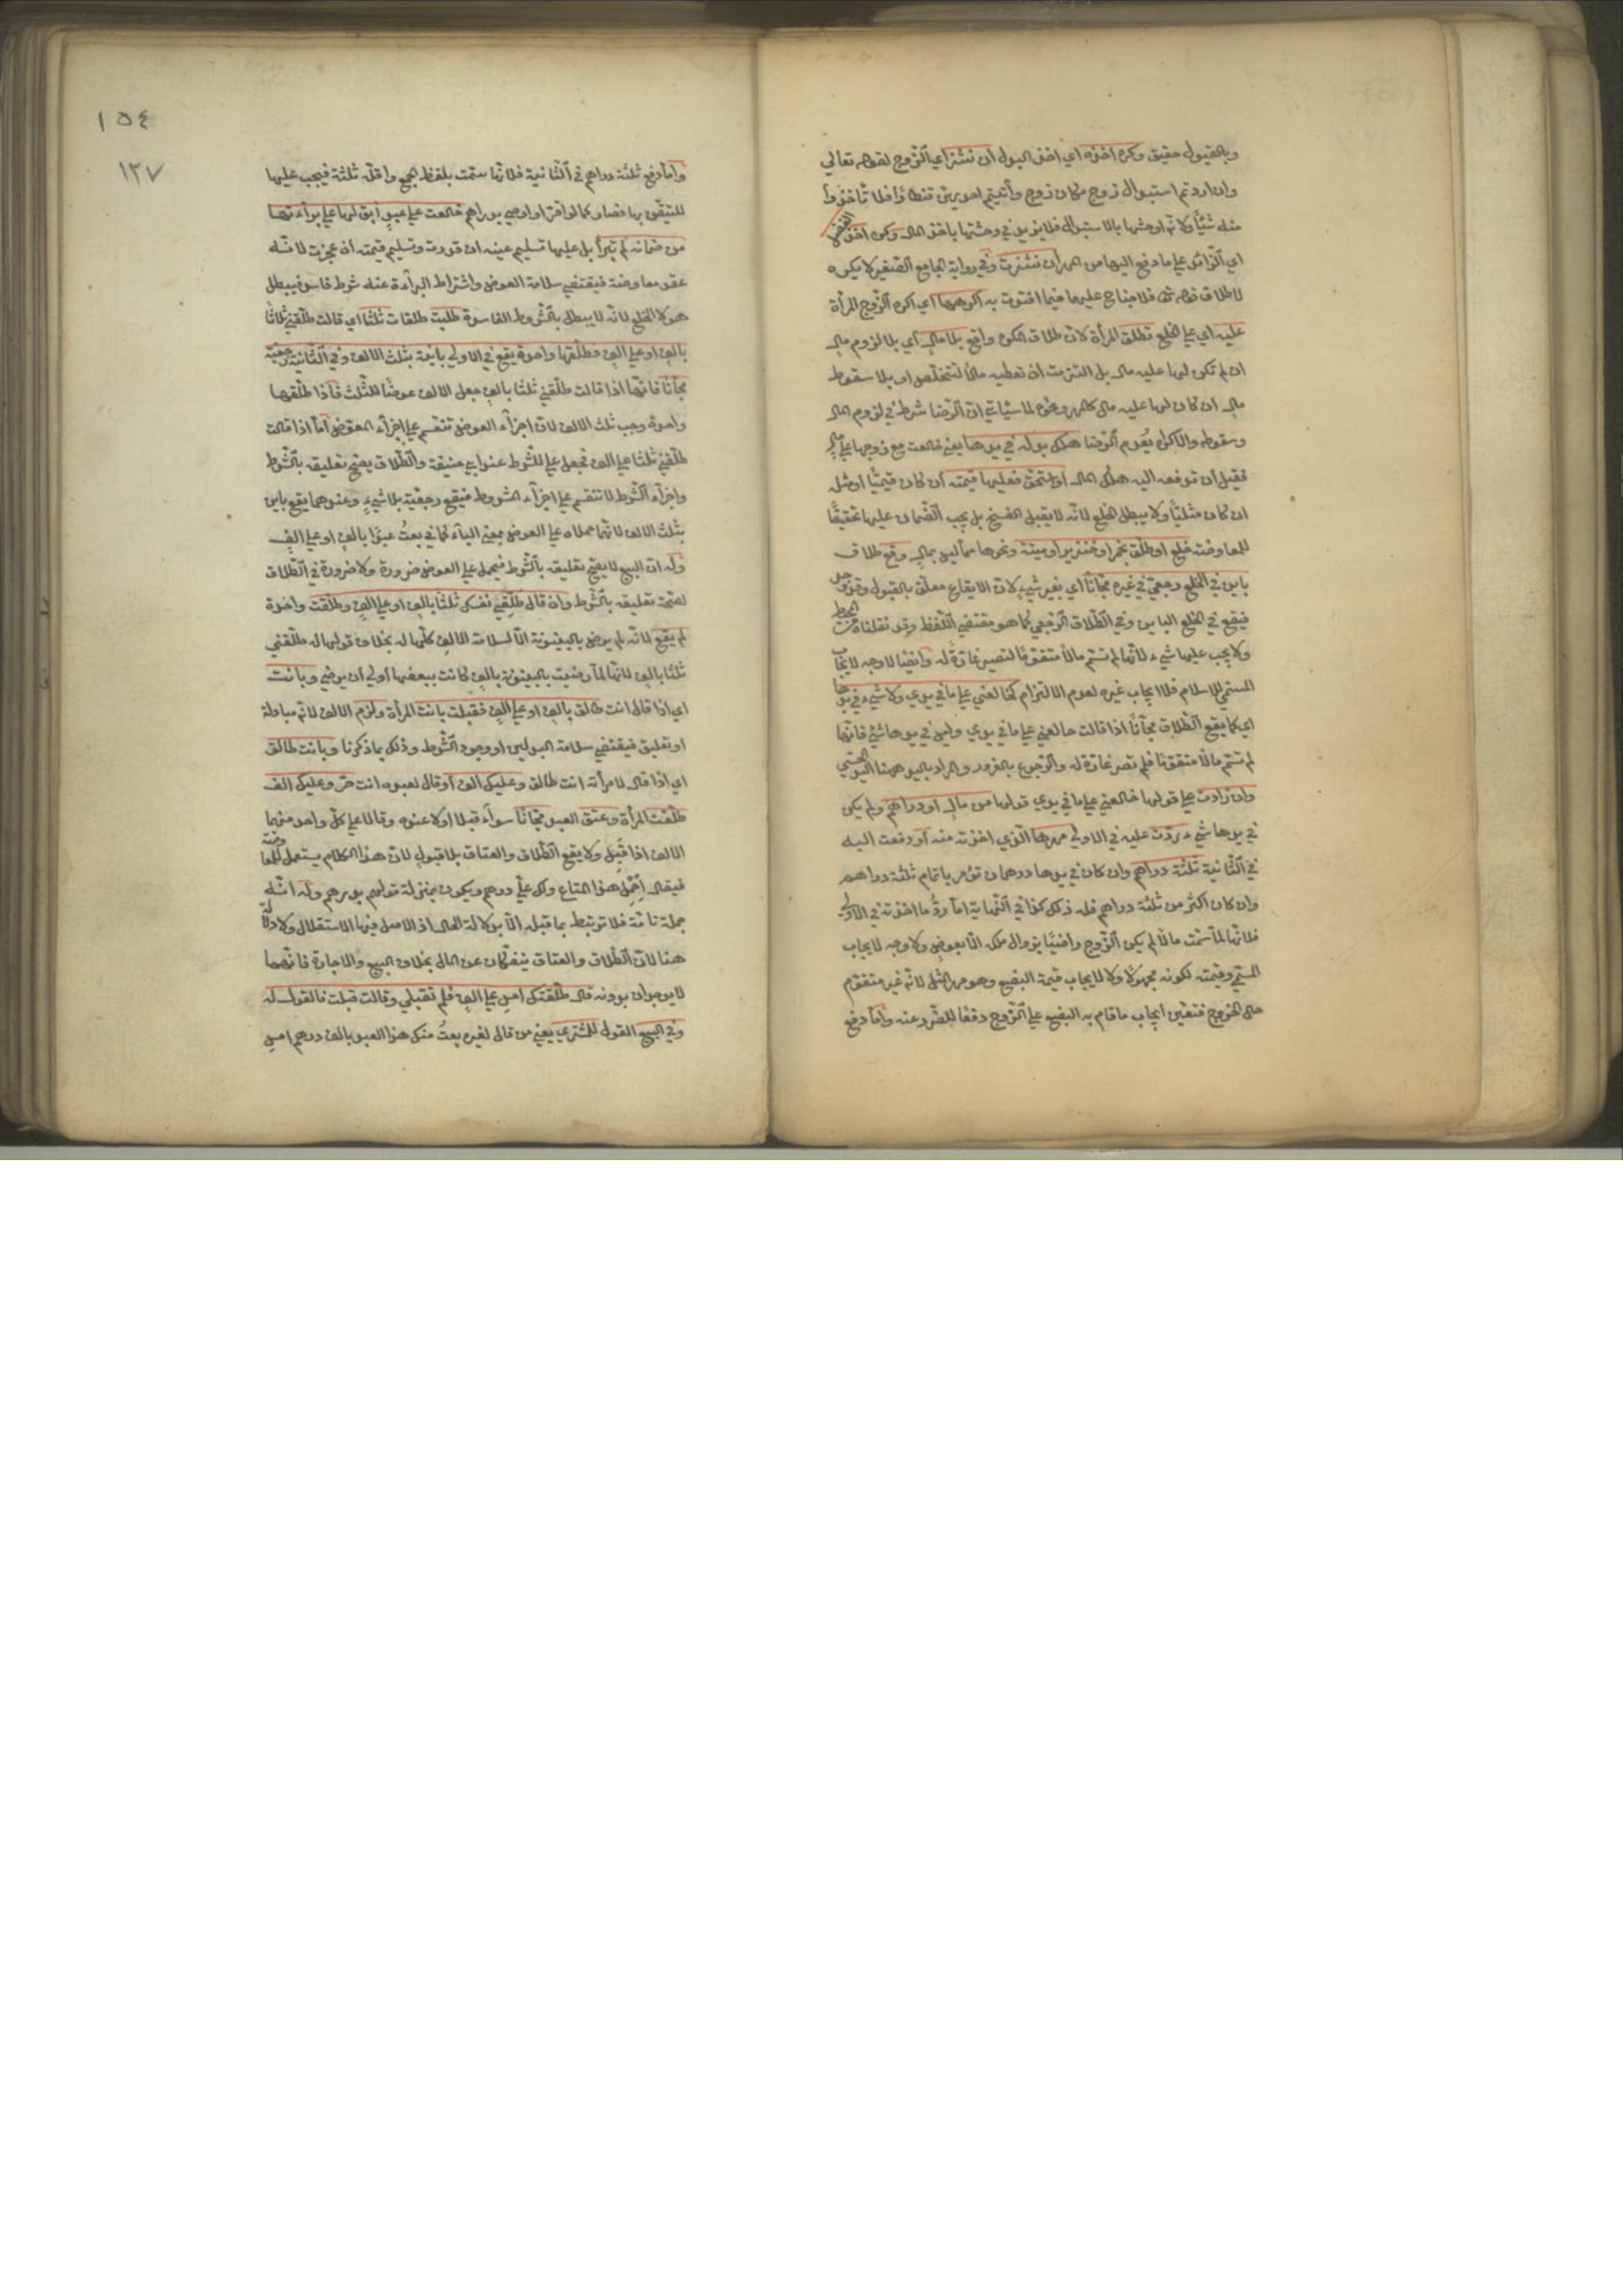 وبالقبول حقيق وكره اخذه اي اخذ البدل ان نشز اي الزوج لقوله تعالي
وان اردتم استبدال زوج مكان زوج وآتيتم احديهن قنطارا فلا تأخذوا
منه شيئا ولانه اوحشها بالاستبدال فلا يزيد في وحشتها باخذ المال وكره اخذ الفضل
اي الزائد علي ما دفع اليها من المهر ان نشزت وفي رواية الجامع الصغير لا يكره
لاطلاق قوله تع فلا جناح عليهما فيما افتدت به اكرهها اي اكره الزوج المرأة
عليه اي علي الخلع تطلق المرأة لان طلاق المكره واقع بلا مال اي بلا لزوم مال
ان لم تكن لها عليه مال بل التزمت ان تعطيه مالا لتتخلص او بلا سقوط
مال ان كان لها عليه مال كالمهر ونحوه لما سيأتي ان الرضا شرط في لزوم المال
وسقوطه والاكراه يعدم الرضا هلك بدله في يدها يعني خالعت مع زوجها علي مال
فقبل ان تدفعه اليه هلك المال او استحق فعليها قيمته ان كان قيميا او مثله
ان كان مثليا ولا يبطل الخلع لانه لا يقبل الفسخ بل يجب الضمان عليها تحقيقا
للمعاوضة خلع او طلق بخمر او خنزير او ميتة ونحوها مما ليس بمال وقع طلاق
باين في الخلع رجعي في غيره مجانا اي بغير شيء لان الايقاع معلق بالقبول وقد وجد
فيقع في الخلع الباين وفي الطلاق الرجعي كما هو مقتضي اللفظ وقد نقلناه من المحيط
ولا يجب عليها شيء لانها لم تسم مالا متقوما لتصير غارة له وايضا لا وجه لايجاب
المسمي للاسلام فلا ايجاب غيره لعدم الالتزام كخالعني علي ما في يدي ولا شيء في يدها
اي كما يقع الطلاق مجانا اذا قالت خالعني علي ما في يدي وليس في يدها شئ فانها
لم تسم مالا متقوما فلم تصر غارة له والرجوع بالغرور والمراد باليد ههنا اليد الحسي
وان زادت علي قولها خالعني علي ما في يدي قولها من مال او دراهم ولم يكن
في يدها شيء ردت عليه في الاولي مهرها الذي اخذته منه او دفعت اليه
في الثانية ثلثة دراهم وان كان في يدها درهمان تؤمر باتمام ثلثة دراهم
وان كان اكثر من ثلثة دراهم فله ذلك كذا في النهاية اما رد ما اخذته في الاولي
فلانها لما سمت مالا لم يكن الزوج راضيا بزوال ملكه الا بعوض ولا وجه لايجاب
المسمي وقيمته لكونه مجهولا ولا لايجاب قيمة البضع وهو مهر المثل لانه غير متقوم
حال الخروج فتعين ايجاب ما قام به البضع علي الزوج دفعا للضرر عنه واما دفع
١٥٤
١٣٧
واما دفع ثلثة دراهم في الثانية فلانها سمت بلفظ الجمع واقله ثلثة فيجب عليها
للتيقن بها فصار كما لو اقر او اوصي بدراهم خالعت علي عبد ابق لها علي براءتها
من ضمانه لم تبرأ بل عليها تسليم عينه ان قدرت وتسليم قيمته ان عجزت لانه
عقد معاوضة فيقتضي سلامة العوض واشتراط البراءة عنه شرط فاسد فيبطل
هو لا الخلع لانه لا يبطل بالشروط الفاسدة طلبت طلقات ثلثا اي قالت طلقني ثلاثا
بالف او علي الف فطلقها واحدة يقع في الاولي باينة بثلث الالف وفي الثانية رجعية
مجانا فانها اذا قالت طلقني ثلثا بالف جعل الالف عوضا للثلث فاذا طلقها
واحدة وجب ثلث الالف لان اجزاء العوض تنقسم علي اجزاء المعوض اما اذا قالت
طلقني ثلثا علي الف فجعل علي للشرط عند ابي حنيفة والطلاق يصح تعليقه بالشرط
واجزاء الشرط لا تنقسم علي اجزاء المشروط فتقع رجعية بلا شيء وعندهما يقع باين
بثلث الالف لانهما حملاه علي العوض بمعني الباء كما في بعت عبدا بالف او علي الف
وله ان البيع لا يصح تعليقه بالشرط فيحمل علي العوض ضرورة ولا ضرورة في الطلاق
لصحة تعليقه بالشرط وان قال طلقي نفسك ثلثا بالف او علي الف وطلقت واحدة
لم يقع لانه لم يرض بالبينونة الا لسلامة الالف كلها له بخلاف قولها له طلقني
ثلثا بالف لانها لما رضيت بالبينونة بالف كانت ببعضها اولي ان يرضي وبانت
اي اذا قال انت طالق بالف او علي الف فقبلت بانت المرأة ولزم الالف لانه مبادلة
او تعليق فيقتضي سلامة البدلين او وجود الشرط وذلك بما ذكرنا وبانت طالق
اي اذا قال لامرأته انت طالق وعليك الف او قال لعبده انت حر وعليك الف
طلقت المرأة وعتق العبد مجانا سواء قبلا او لا عنده وقالا علي كل واحد منهما
الالف اذا قبل ولا يقع الطلاق والعتاق بلا قبول لان هذا الكلام يستعمل للمعاوضة
فيقال احمل هذا المتاع ولك علي درهم ويكون بمنزلة قولهم بدرهم وله انه
جملة تامة فلا ترتبط بما قبله الا بدلالة الحال اذ الاصل فيها الاستقلال ولا دلالة
هنا لان الطلاق والعتاق ينفكان عن المال بخلاف البيع والاجارة فانهما
لا يوجدان بدونه قال طلقتك امس علي الف فلم تقبلي وقالت قبلت فالقول له
وفي البيع القول للمشتري يعني من قال لغيره بعت منك هذا العبد بالف درهم امس